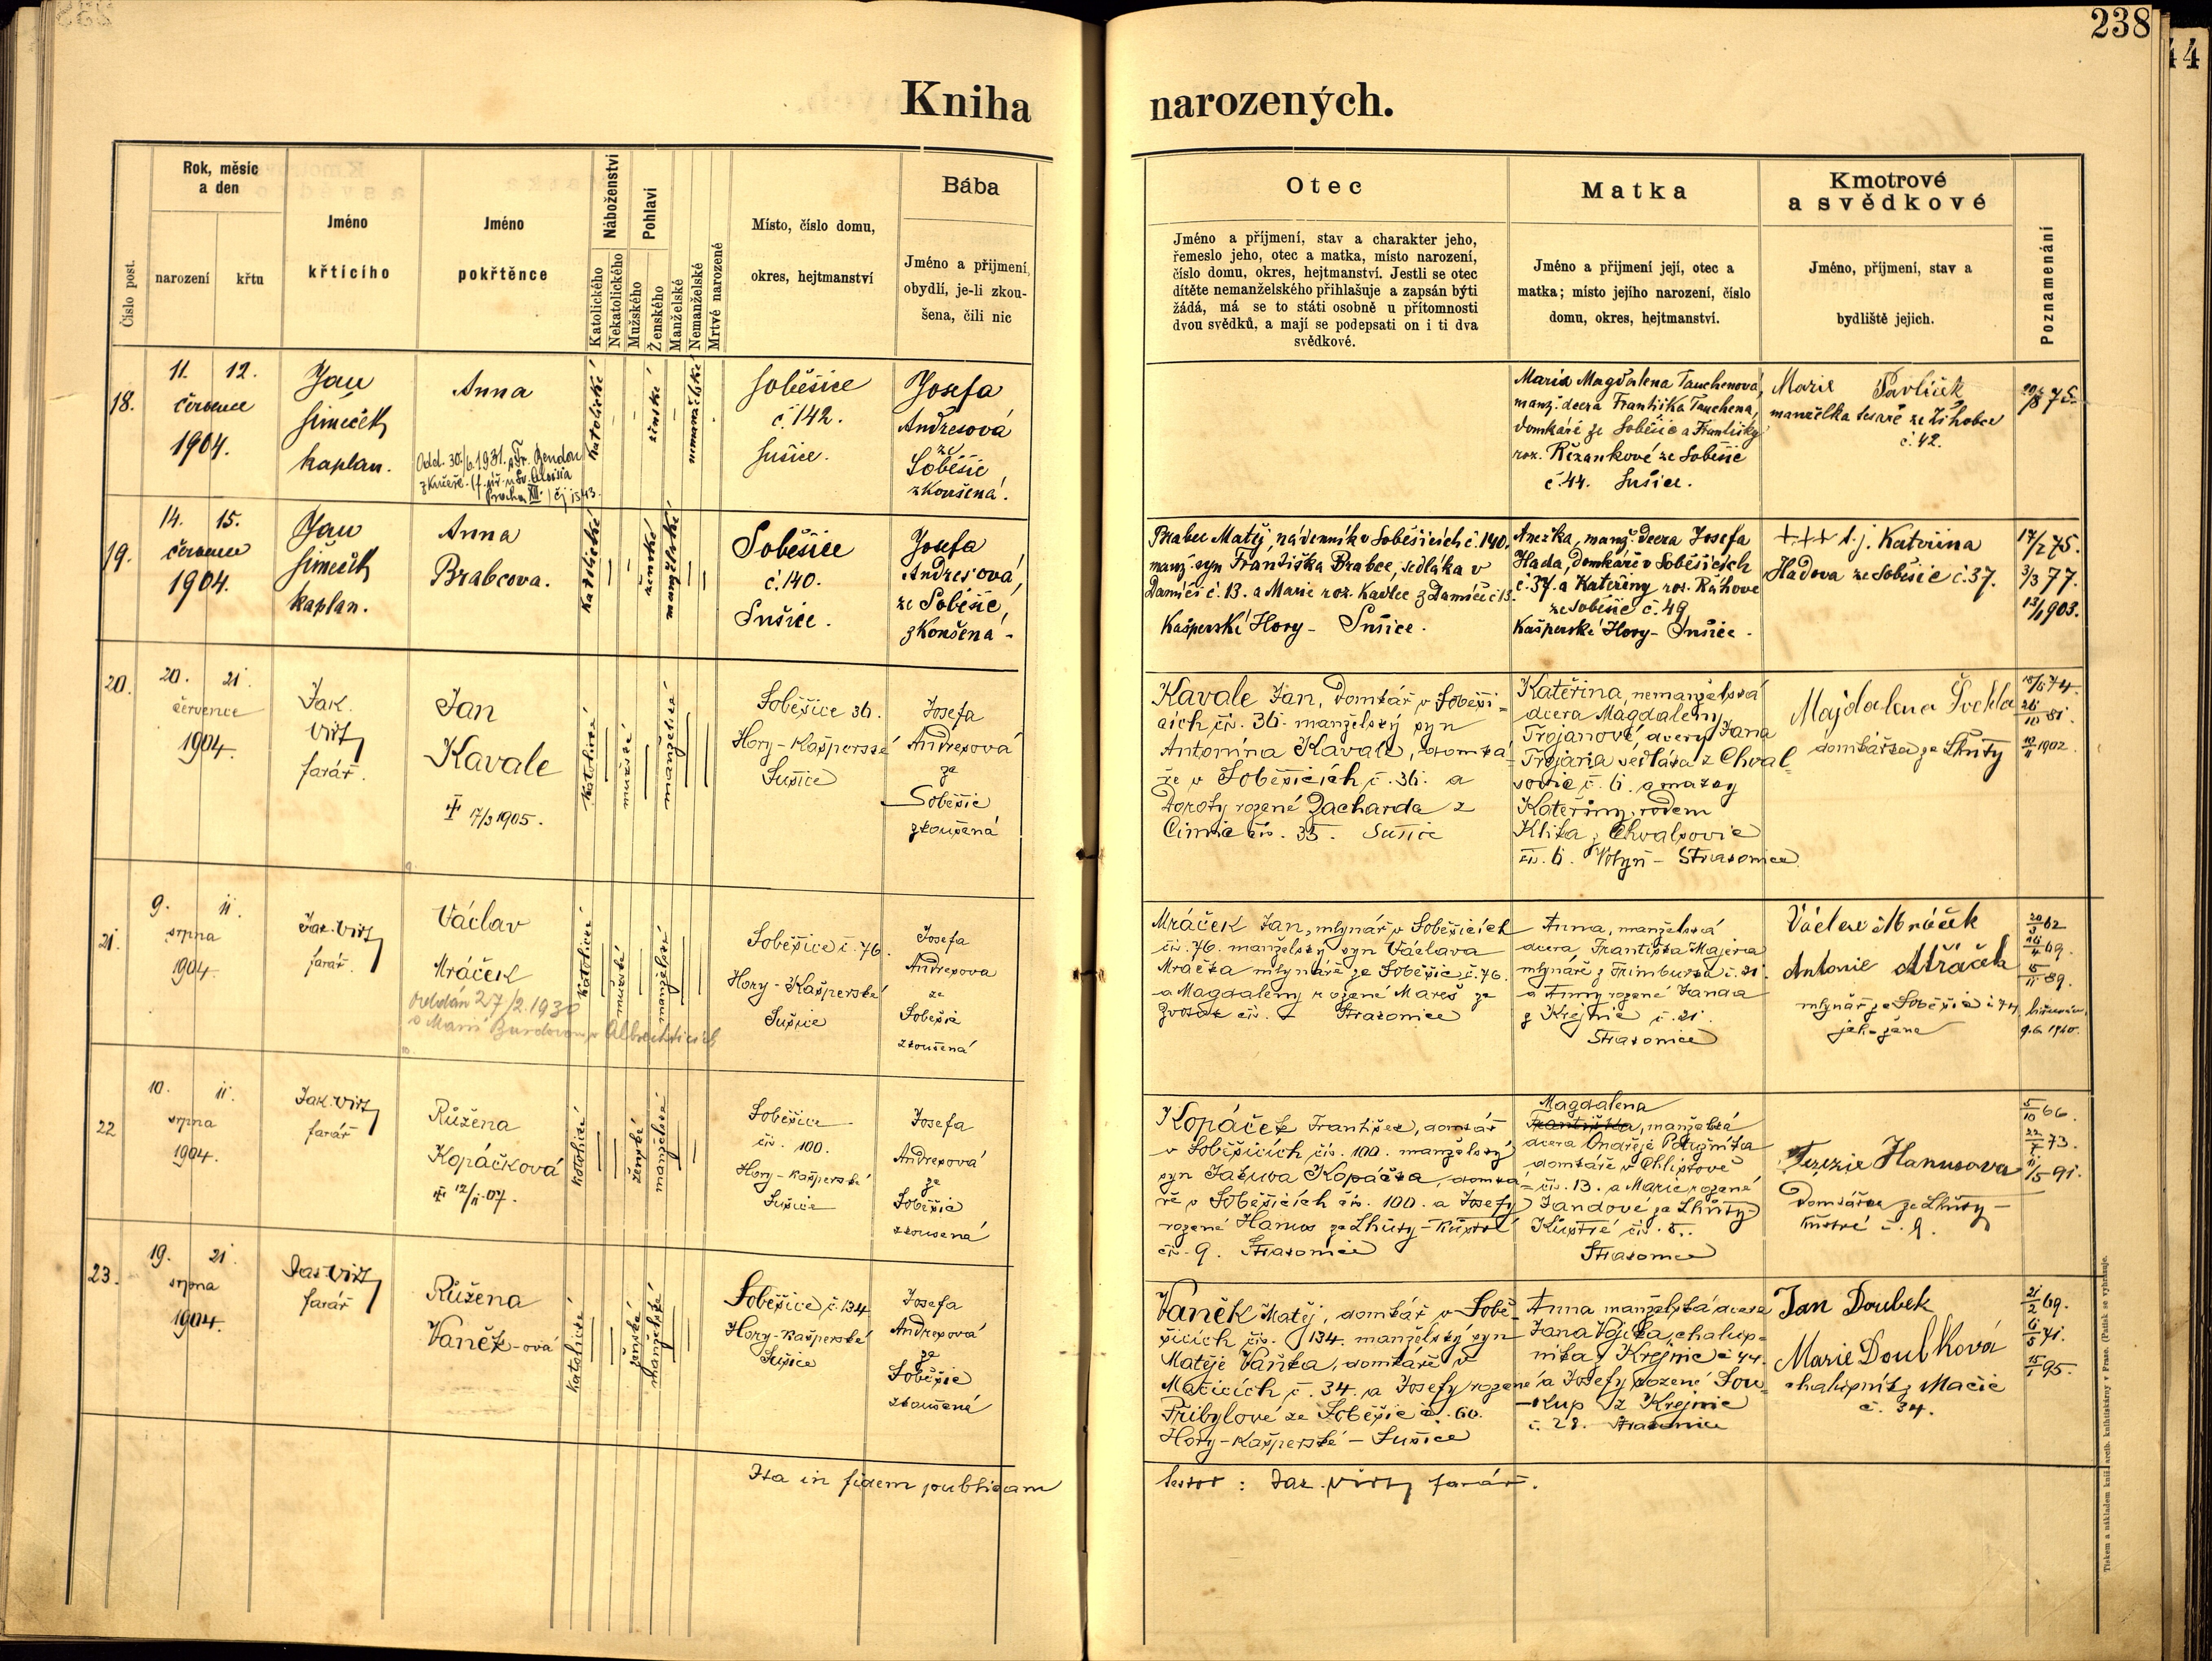 238
44
Kniha narozených.
Číslo post.
Rok, měsíc
a den
narození
křtu
Jméno
křtícího
Jméno
pokřtěnce
Náboženství
Katolického
Nekatolického
Pohlaví
Mužského
Ženského
Manželské
Nemanželské
Mrtvé narozené
Místo, číslo domu,
okres, hejtmanství
Bába
Jméno a příjmení,
obydlí, je-li zkou-
šena, čili nic
Otec
Jméno a příjmení, stav a charakter jeho,
řemeslo jeho, otec a matka, místo narození,
číslo domu, okres, hejtmanství. Jestli se otec
dítěte nemanželského přihlašuje a zapsán býti
žádá, má se to státi osobně u přítomnosti
dvou svědků, a mají se podepsati on i ti dva
svědkové.
Matka
Jméno a příjmení její, otec a
matka; místo jejího narození, číslo
domu, okres, hejtmanství.
Kmotrové
a svědkové
Jméno, příjmení, stav a
bydliště jejich.
Poznamenání
18.
11. 12.
července
1904.
Jan
Šimeček
kaplan.
Anna
Odd. 30./6.1931. s Fr.
Praha XII.
katolické
ženské
nemanželské
Soběšice
č. 142.
Sušice.
Josefa
Andresová
ze
Soběšic
zkoušená.
Maria Magdalena Tauchenová,
manž. dcera Františka Tauchena,
domkáře ze Soběšic a Františky
roz. Řezankové ze Soběšic
č. 44. Sušice.
Marie Pavlíček
manželka tesaře ze Žihobce
č. 42.
20/8 75.
19.
14. 15.
července
1904.
Jan
Šimeček
kaplan.
Anna
Brabcova.
katolické
ženské
manželské
Soběšice
č. 140.
Sušice.
Josefa
Andresová,
ze Soběšic,
zkoušená.
Brabec Matěj, nádenník v Soběšicích č. 140.
manž. syn Františka Brabce, sedláka v
Damíči č. 13. a Marie roz. Kavlec z Damíče č. 13.
Kašperské Hory - Sušice.
Anežka, manž. dcera Josefa
Hada, domkáře v Soběšicích
č. 37. a Kateřiny roz. Růhove
ze Soběšic č. 49
Kašperské Hory - Sušice.
+++ t.j. Kateřina
Hadova ze Soběšic č. 37.
17/2 75.
3/3 77.
13/1 1903.
20.
20. 21.
července
1904.
Jak.
Virt
farář.
Jan
Kavale
✝ 17/3 1905.
katolické
mužské
manželské
Soběšice 36.
Hory-Kašperské
Sušice
Josefa
Andresová
ze
Soběšic
zkoušená
Kavale Jan, domkář v Soběši-
cích čís. 36. manželský syn
Antonína Kavale, domká-
ře v Soběšicích č. 36. a
Doroty rozené Zacharda z
Čimic čís. 35. Sušice
Kateřina, nemanželská
dcera Magdaleny
Trojanové dcery Jana
Trojana sedláka z Chval-
šovic č. 6. a matky
Kateřiny, rodem
Klika z Chvalšovic
čís. 6. Volyň - Strakonice
Majdalena Švehla
domkářka ze Lhůty
18/6 74.
26/10 81.
10/11 1902.
21.
9. 11.
srpna
1904.
Jak. Virt
farář.
Václav
Mráček
Oddán 27/2.1930
s Marií v Albrechticích
katolické
mužské
manželské
Soběšice č. 76.
Hory-Kašperské
Sušice
Josefa
Andresova
ze
Soběšic
zkoušená
Mráček Jan, mlynář v Soběšicích
čís. 76. manželský syn Václava
Mráčka mlynáře ze Soběšic č. 76.
a Magdaleny rozené Mareš ze
čís. Strakonice
Anna, manželská
dcera Františka Majera
mlynáře z Frimburka č. 21.
a Anny rozené Janda
z Krejnic č. 21.
Strakonice
Václav Mráček
Antonie Mráček
mlynář ze Soběšic č. 74.
jeho žena
20/3 62
26/4 69.
15/11 89.
biřmován
9.6. 1910.
22
10. 11.
srpna
1904.
Jak. Virt
farář
Růžena
Kopáčková
✝ 12/11.07.
katolické
ženské
manželské
Soběšice
čís. 100.
Hory-Kašperské
Sušice
Josefa
Andresová
ze
Soběšic
zkoušená
Kopáček František, domkář
v Soběšicích čís. 100. manželský
syn Jakuba Kopáčka, domká-
ře v Soběšicích čís. 100. a Josefy
rozené Hanus ze Lhůty-Kůstré
čís. 9. Strakonice
Magdalena
Františka, manželská
dcera Ondřeje Potužníka
domkáře v Chlistově
čís. 13. a Marie rozené
Jandové ze Lhůty-
Kůstré čís. 5.
Strakonice
Terezie Hanusova
Domkářka ze Lhůty-
Kůstré č. 9.
5/10 66.
22/7 73.
11/5 91.
23.
19. 21.
srpna
1904.
Jak. Virt
farář
Růžena
Vaněk-ová
katolické
ženské
manželské
Soběšice č. 134
Hory-Kašperské
Sušice
Josefa
Andresová
ze
Soběšic
zkoušená
Vaněk Matěj, domkář v Sobě-
šicích čís. 134. manželský syn
Matěje Vaňka, domkáře v
Mačicích č. 34. a Josefy rozené
Přibylové ze Soběšic č. 60.
Hory-Kašperské - Sušice
Anna manželská dcera
Jana Vojíka, chalup-
níka z Krejnic č. 44.
a Josefy rozené Sou-
kup z Krejnic
č. 28. Strakonice
Jan Doubek
Marie Doubková
chalupník z Mačic
č. 34.
21/2 69.
6/5 71.
15/1 95.
Ita in fidem publicam
testor: Jak. Virt farář.
Tiskem a nákladem kníž. arcib. knihtiskárny v Praze. (Patisk se vyhražuje.